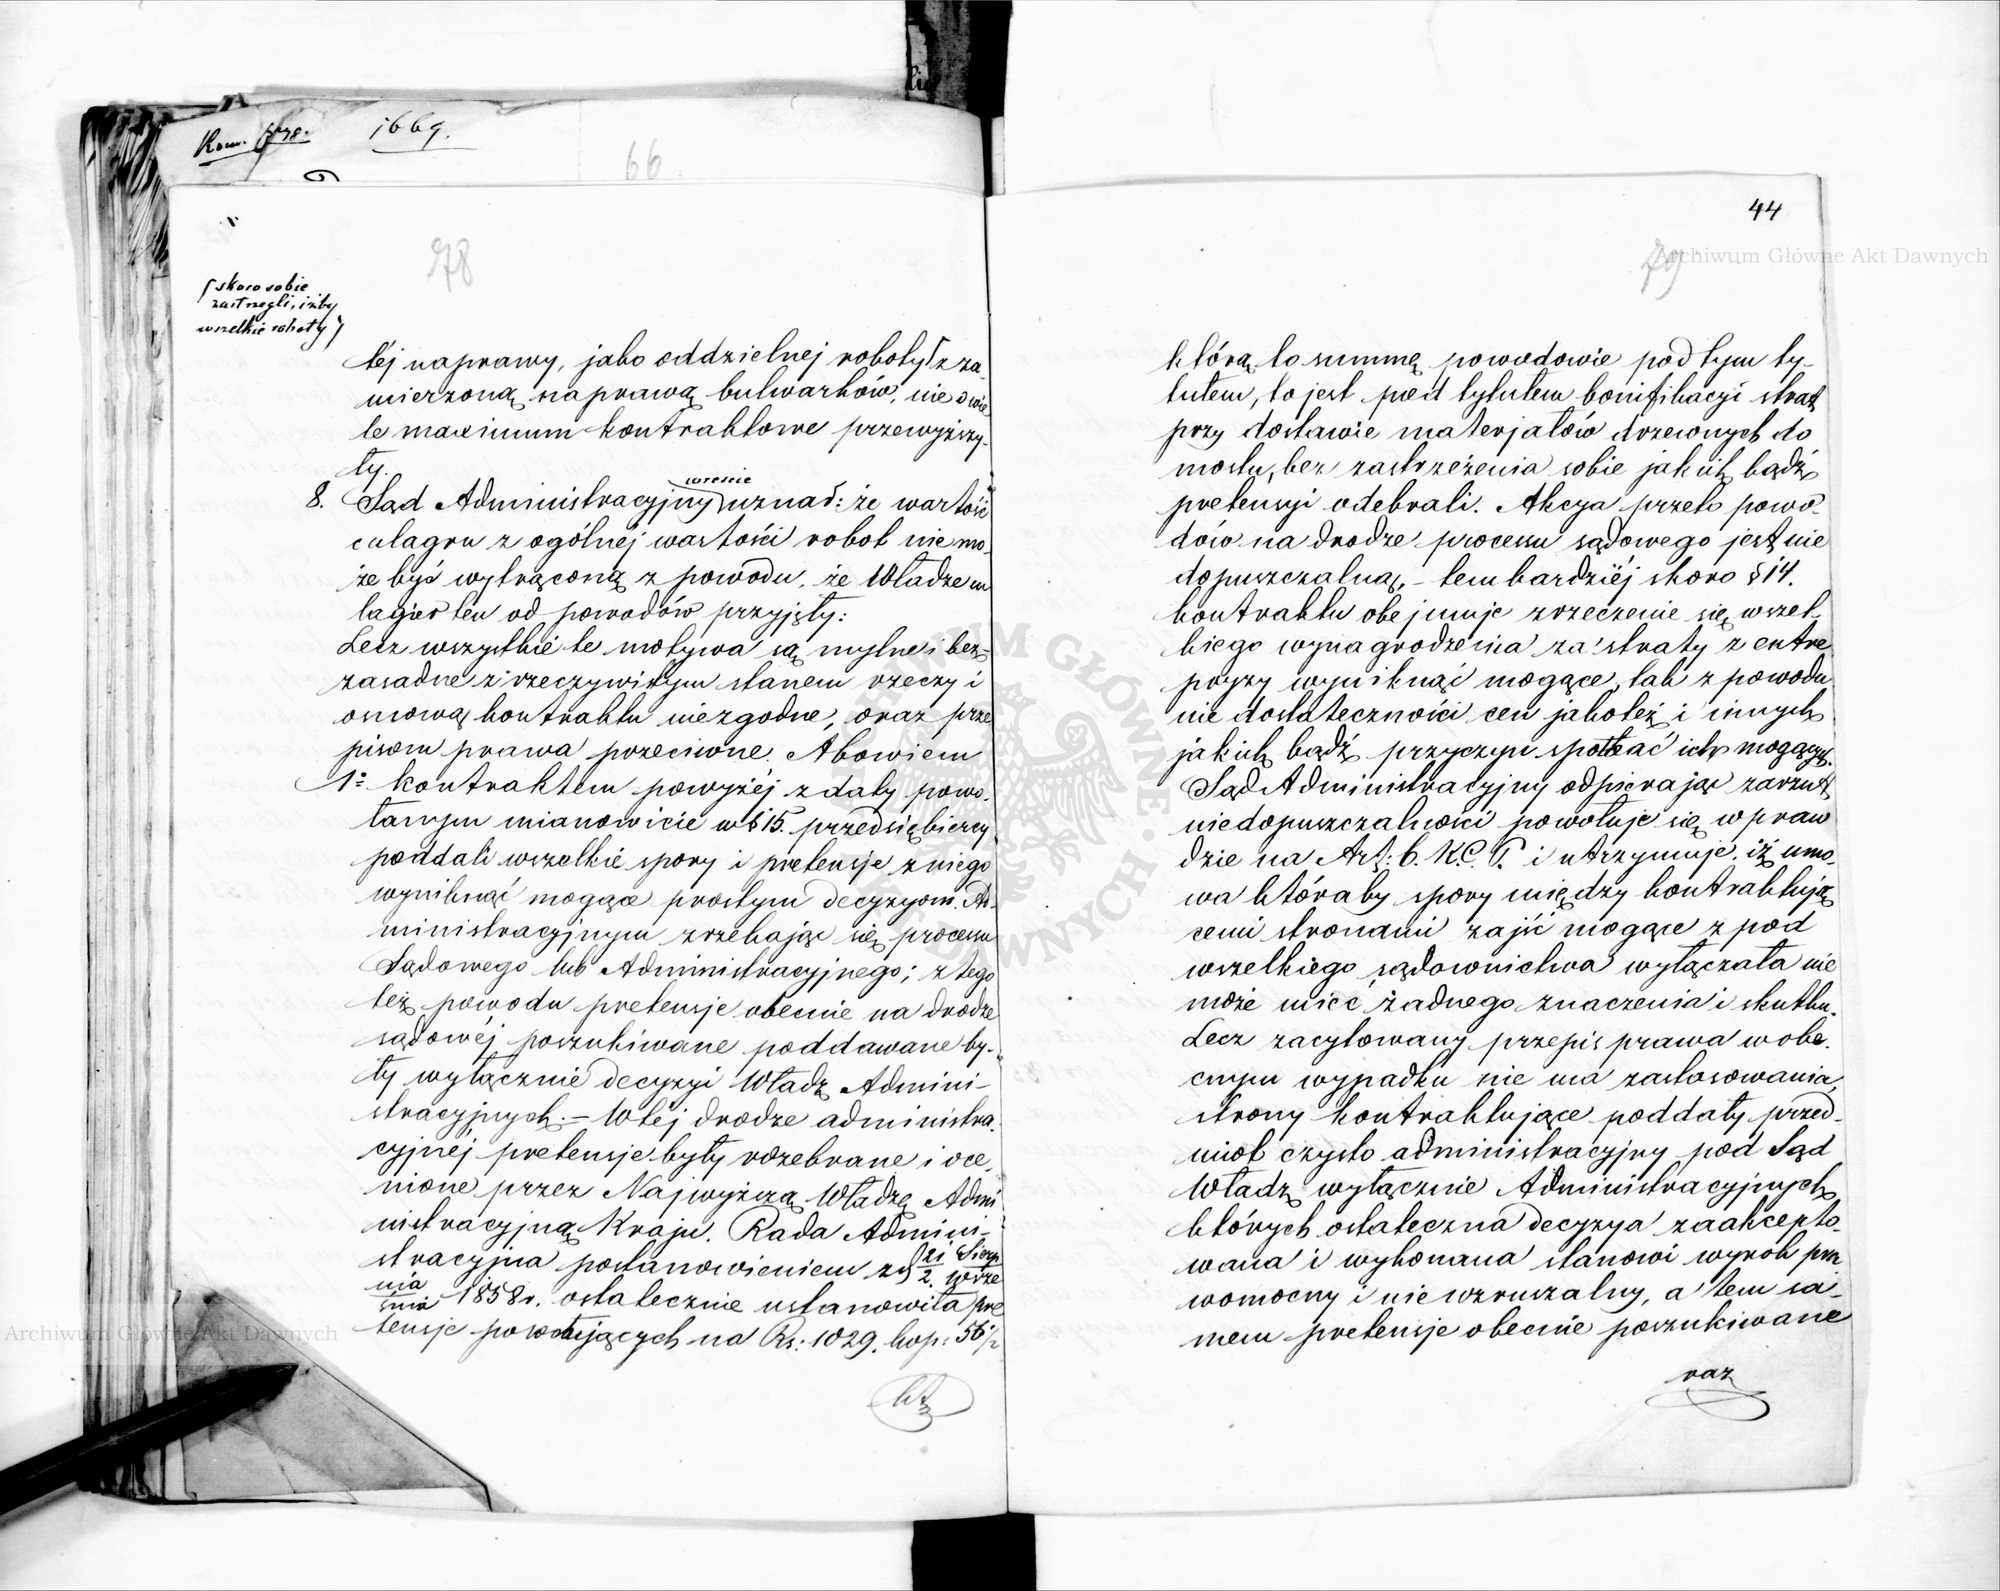 1669.
66
78
skoro sobie
zastrzegli, iżby
wszelkie roboty
téj naprawy, jako oddzielnej roboty z za-
mierzoną naprawą bulwarków, nie o wie
le maximum kontraktowe przewyższy-
ły.
wreście
8. Sąd Administracyjny uznał: że wartość
culagru z ogólnej wartości robot nie mo-
że być wytrąconą z powodu, że Władze cu
lagier ten od powodów przyjęły:
Lecz wszystkie te motywa są mylne i bez-
zasadne z rzeczywistym stanem rzeczy i
osnową kontraktu niezgodne, oraz prze
pisom prawa przeciwne. Albowiem
1º kontraktem powyżéj z daty powo-
łanym mianowicie w § 15. przedsiębiercy
poddali wszelkie spory i pretensje z niego
wyniknąć mogące prostym decyzyom Ad-
ministracyjnym zrzekając się processu
Sądowego lub Administracyjnego; z tego
też powodu pretensje obecnie na drodze
sądowéj poszukiwane poddawane by-
ły wyłącznie decyzyi Władz Admini-
stracyjnych. — W téj drodze administra-
cyjnéj pretensje były rozebrane i oce-
nione przez Najwyższą Władzę Admi
nistracyjną Kraju. Rada Admini-
stracyjna postanowieniem z d 21 Sierp
nia / 2. Wrze
śnia 1858 r. ostatecznie ustanowiła pre
tensje powodujących na Rs: 1029. kop: 56½
któ
44
79
którą to summę powodowie pod tym ty-
tułem, to jest pod tytułem bonifikacyi strat
przy dostawie materjałów drzewnych do
mostu, bez zastrzeżenia sobie jakich bądź
pretensyi odebrali. Akcya przeto powo-
dów na drodze processu sądowego jest nie
dopuszczalną, — tem bardziéj skoro § 14.
kontraktu obejmuje zrzeczenie się wszel-
kiego wynagrodzenia za straty z entre
pryzy wyniknąć mogące, tak z powodu
nie dostateczności cen jakoteż i innych
jakich bądź przyczyn spotkać ich mogących.
Sąd Administracyjny odpierając zarzut
niedopuszczalności powołuje się wpraw
dzie na Art: 6. K.C.P. i utrzymuje, iż umo-
wa któraby spory między kontraktują
cemi stronami zajść mogące z pod
wszelkiego sądownictwa wyłączała nie
może mieć żadnego znaczenia i skutku.
Lecz zacytowany przepis prawa w obe-
cnym wypadku nie ma zastosowania,
strony kontraktujące poddały przed-
miot czysto administracyjny pod Sąd
Władz wyłącznie Administracyjnych
których ostateczna decyzya zaakcepto-
wana i wykonana stanowi wyrok pra
womocny i niewzruszalny, a tem sa-
mem pretensje obecnie poszukiwane
raz
Archiwum Główne Akt Dawnych
Archiwum Główne Akt Dawnych